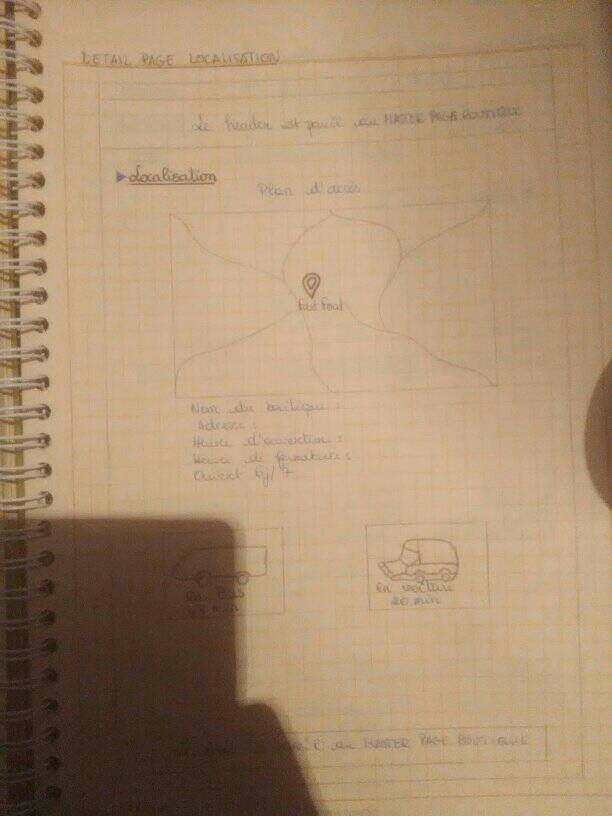 DETAIL PAGE LOCALISATION
Le header est au MASTER PAGE BOUTIQUE
Localisation
Plan d'accès
Fast Food
Nom du boutique :
Adresse :
Heure d'ouverture :
Heure de fermeture :
Ouvert 6j/7
En Bus
En voiture
20 min
au MASTER PAGE BOUTIQUE